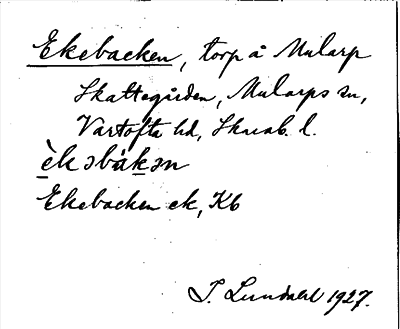 Ekebacken, torp å Mularp
Skattegården, Mularps sn,
Vartofta hd, Skarab. l.
èkəbàkən
Ekebacken ek, Kb
I. Lundahl 1927.